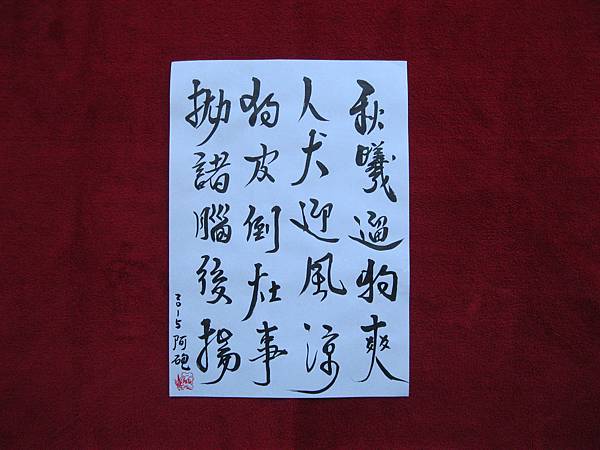 秋曦遛狗爽
人犬迎風涼
狗皮倒灶事
拋諸腦後揚
2015 阿砲